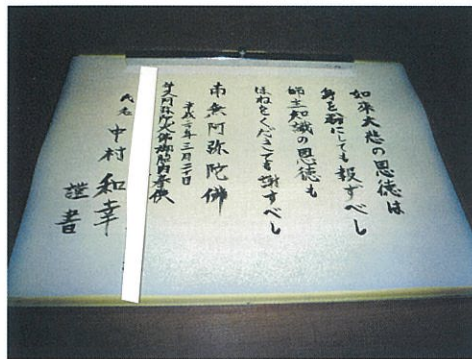 如来大悲の恩徳は
身を粉にしても報ずべし
師主知識の恩徳も
ほねをくだきても謝すべし
南無阿弥陀佛
平成六年三月二十日
胎内奉供
氏名 中村和幸
謹書